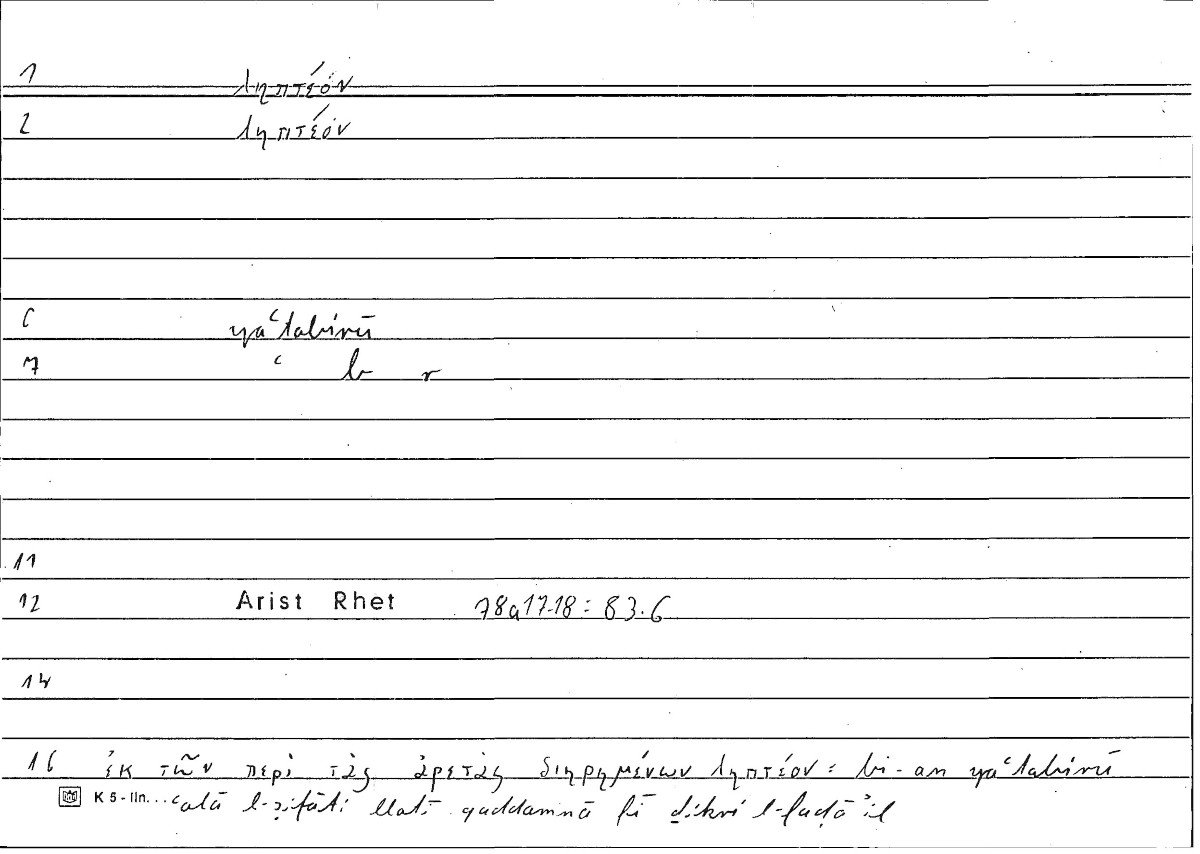 1 ληπτέον
2 ληπτέον
6 yaʿtabirū
7 ʿ b r
11
12 Arist Rhet 78a17-18 : 83.6
14
16 ἐκ τῶν περὶ τὰς ἀρετὰς διῃρημένων ληπτέον : bi-an yaʿtabirū
K 5 - lln... ʿalā l-ṣifāti llatī qaddamnā fī ḏikri l-faḍāʾil